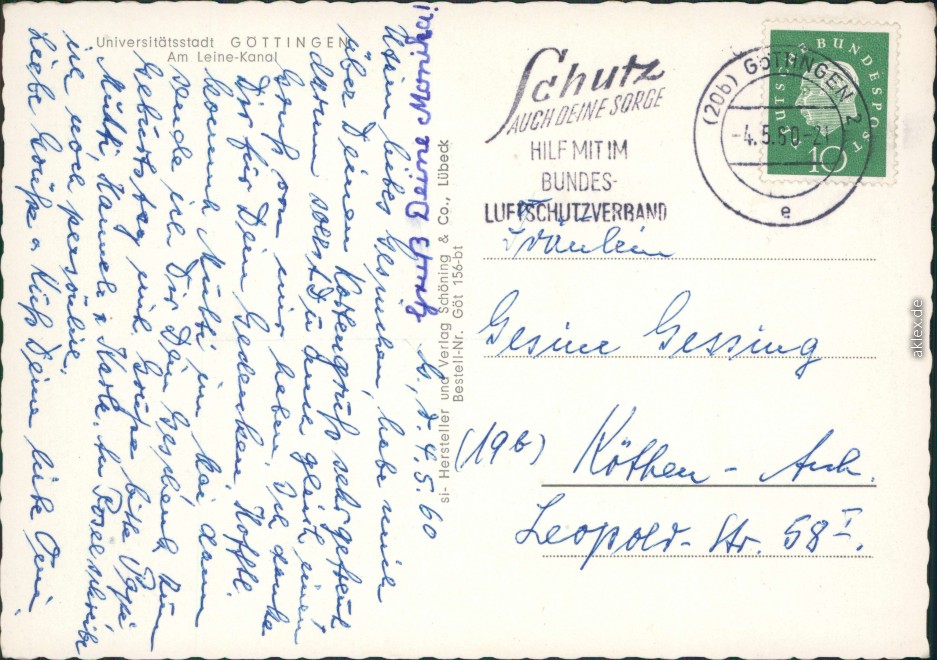 Universitätsstadt GÖTTINGEN
Am Leine-Kanal
Schutz
AUCH DEINE SORGE
HILF MIT IM
BUNDES-
LUFTSCHUTZVERBAND
(20b) GÖTTINGEN 2
-4.5.60-21
e
DEUTSCHE BUNDESPOST
10
Fräulein
Gesine Gessing
(19b) Köthen - Anh.
Leopold-Str. 58 I.
si- Hersteller und Verlag Schöning & Co., Lübeck
Bestell-Nr. Göt 156-bt
G., d. 4.5.60
Mein liebes Gesinchen, habe mich
über Deinen Kartengruß sehr gefreut
darum sollst Du auch gleich einen
Gruß von mir haben. Ich danke
Dir für Dein Gedenken. Hofftl.
kommt Mutti im Mai dann
sende ich Dir Dein Geschenk zum
Geburtstag mit. Grüße bitte Papi
Mutti, Hannele u. Karle. An Rosel schreibe
ich noch persönlich.
Liebe Grüße u. Kuß Deine liebe Omi
Gruß Deine Monika!
aklex.de